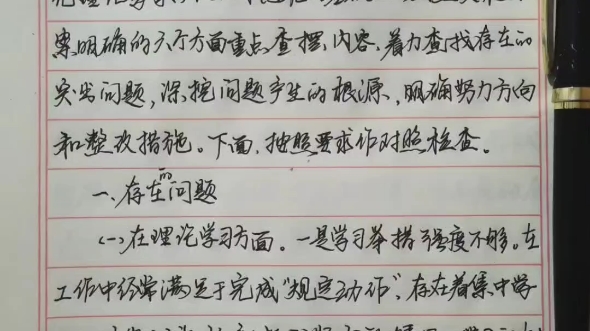 案明确的六个方面重点查摆内容，着力查找存在的
突出问题，深挖问题产生的根源，明确努力方向
和整改措施。下面，按照要求作对照检查。
一、存在的问题
（一）在理论学习方面。一是学习举措强度不够。在
工作中经常满足于完成“规定动作”，存在着集中学